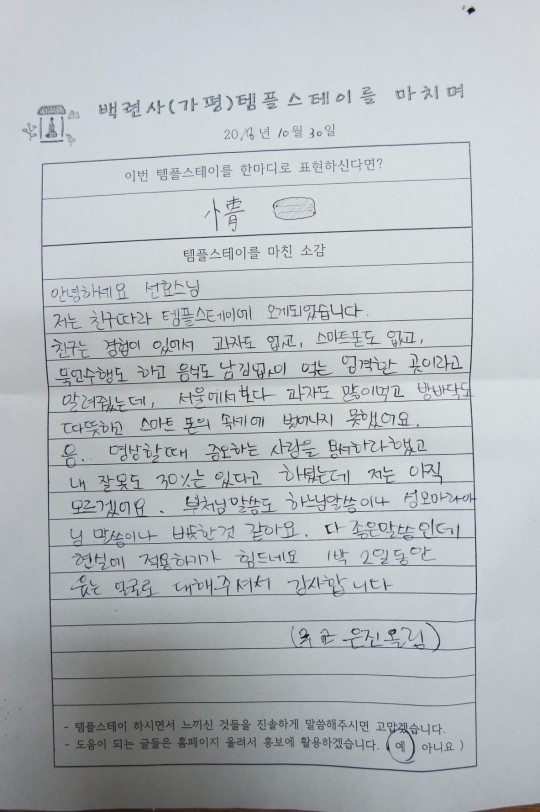 백련사(가평)템플스테이를 마치며
2018년 10월 30일
이번 템플스테이를 한마디로 표현하신다면?
情
템플스테이를 마친 소감
안녕하세요 선효스님
저는 친구따라 템플스테이에 오게되었습니다.
친구는 경험이 있어서 과자도 없고, 스마트폰도 없고,
묵언수행도 하고 음식도 남김없이 먹는 엄격한 곳이라고
말려줬는데, 서울에서보다 과자도 많이먹고 방바닥도
따뜻하고 스마트폰의 속세에 벗어나지 못했어요.
음.. 명상할때 증오하는 사람을 용서하라했고
내 잘못도 30%는 있다고 하셨는데 저는 아직
모르겠어요. 부처님말씀도 하느님말씀이나 성모마리아
님 말씀이나 비슷한것 같아요. 다 좋은말씀인데
현실에 적용하기가 힘드네요 1박 2일동안
웃는 얼굴로 대해주셔서 감사합니다
은진올림)
- 템플스테이 하시면서 느끼신 것들을 진솔하게 말씀해주시면 고맙겠습니다.
- 도움이 되는 글들은 홈페이지 올려서 홍보에 활용하겠습니다. ( 예 아니요 )